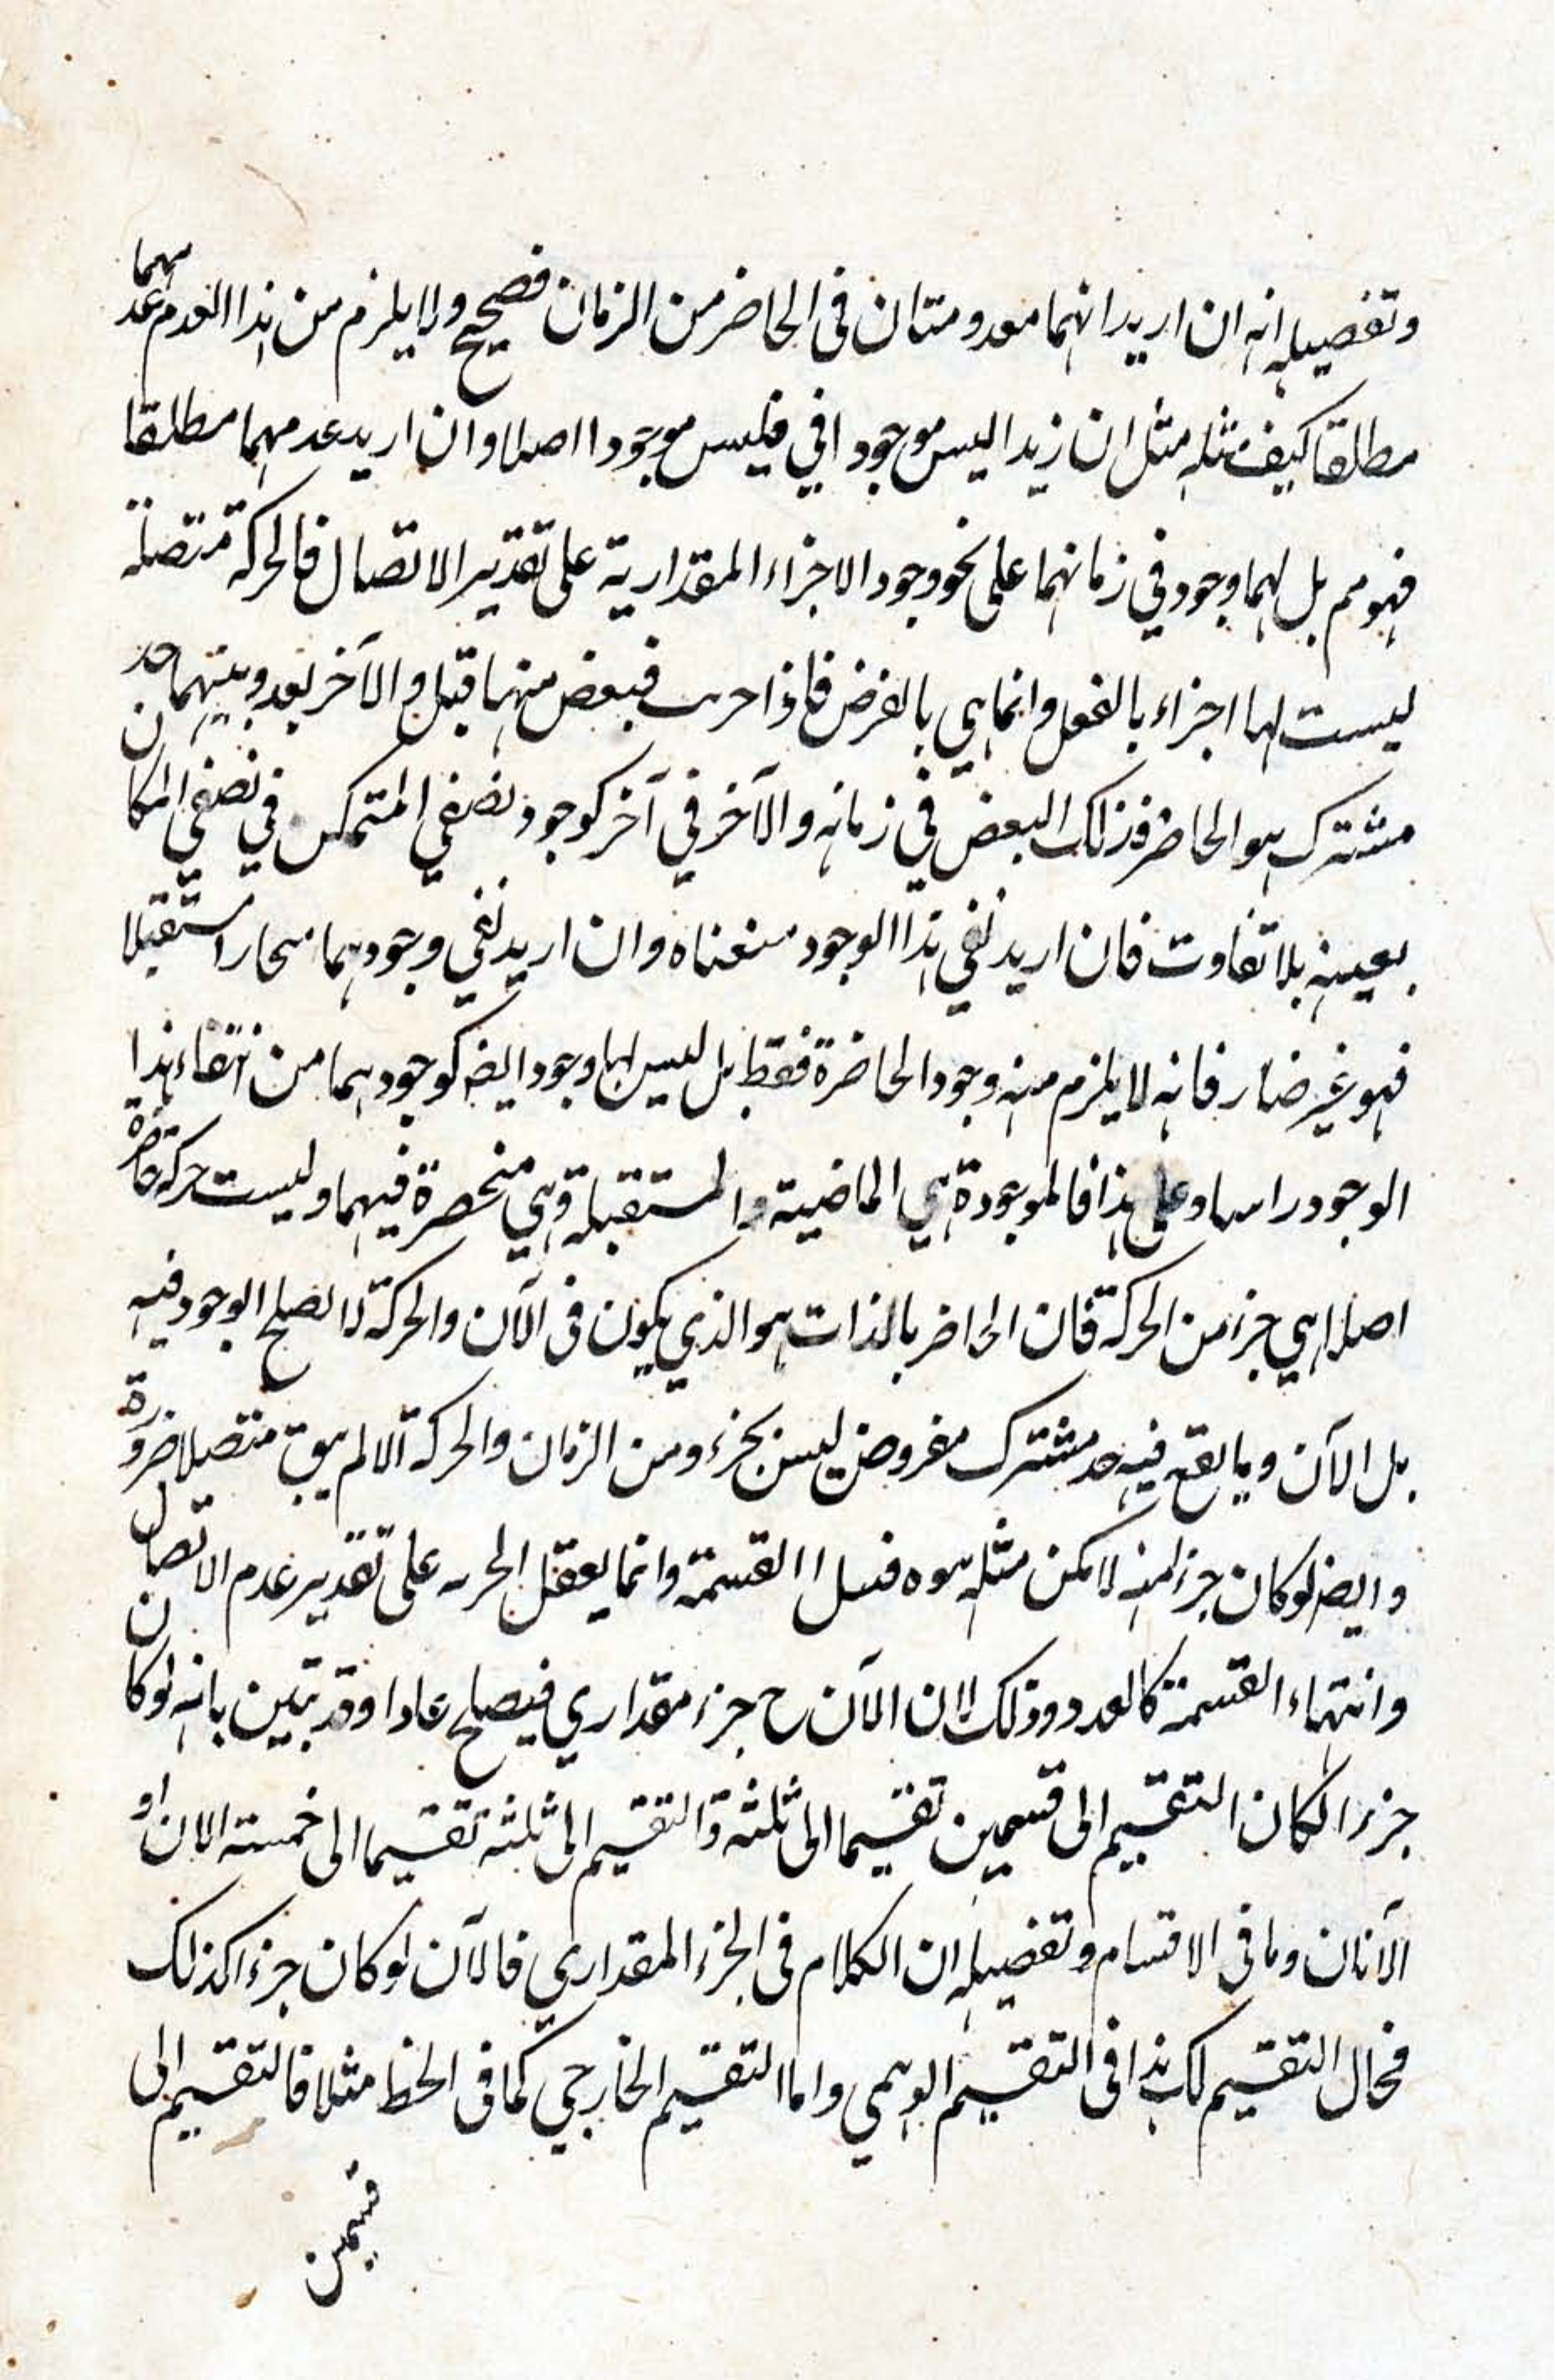 وتفصيله انه ان اريد انهما معدومتان فى الحاضر من الزمان فصحيح ولا يلزم من هذا العدم عدمهما
مطلقا كيف مثله مثل ان زيدا ليس موجودا في فليس موجودا اصلا وان اريد عدمهما مطلقا
فهو مم بل لهما وجود في زمانهما على نحو وجود الاجزاء المقدارية على تقدير الاتصال فالحركة متصلة
ليست لها اجزاء بالفعل وانما هي بالفرض فاذا فبعض منها قبل والآخر بعد وبينهما حد
مشترك هو الحاضر فذلك البعض في زمانه والآخر في آخر كوجود نصفي المتمكن في نصفي المكان
بعينه بلا تفاوت فان اريد نفي هذا الوجود منعناه وان اريد نفي وجودهما استقبلا
فهو غير ضار فانه لا يلزم منه وجود الحاضرة فقط بل ليس لها وجود ايضا كوجودهما من انتفاء هذا
الوجود راسا وعلى هذا فالموجودة هي الماضية والمستقبلة وهي منحصرة فيهما وليست حركة حاضرة
اصلا هي جزء من الحركة فان الحاضر بالذات هو الذي يكون فى الآن والحركة لا تصلح الوجود فيه
بل الآن وما يقع فيه حد مشترك مفروض ليس بجزء ومن الزمان والحركة الا لم يبق متصلا ضرورة
وايضا لو كان جزء منه لامكن مثله القسمة وانما يعقل على تقدير عدم الاتصال
وانتهاء القسمة كالعدد وذلك لان الآن ح جزء مقداري فيصلح عادا وقد تبين بانه لو كان
جزءا لكان التقسيم الى قسمين تقسيما الى ثلثة والتقسيم الى ثلثة تقسيما الى خمسة الان او
الآنان وما فى الاقسام وتفصيله ان الكلام فى الجزء المقداري فالآن لو كان جزءا كذلك
فحال التقسيم لك هذا فى التقسيم الوهمي واما التقسيم الخارجي كما فى الخط مثلا فالتقسيم الى
قسمين